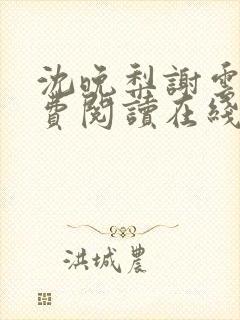 沈晚梨謝雲
費閱讀在綫
洪城農